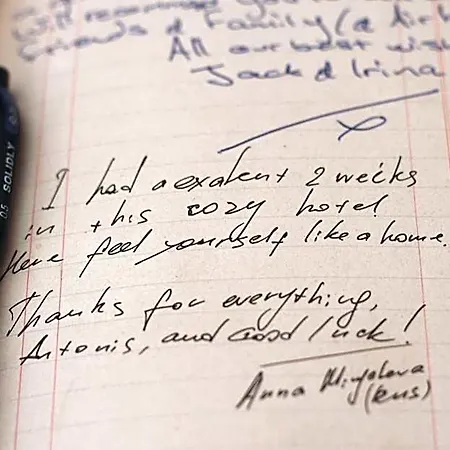 will recommend you
friends & Family (& Airb
All our best wish
Jack & Irina
I had a exalent 2 weeks
in this cozy hotel
Here feel yourself like a home.
Thanks for everything,
Antonis, and Good luck!
Anna
(Rus)
0.5 SOLIDLY